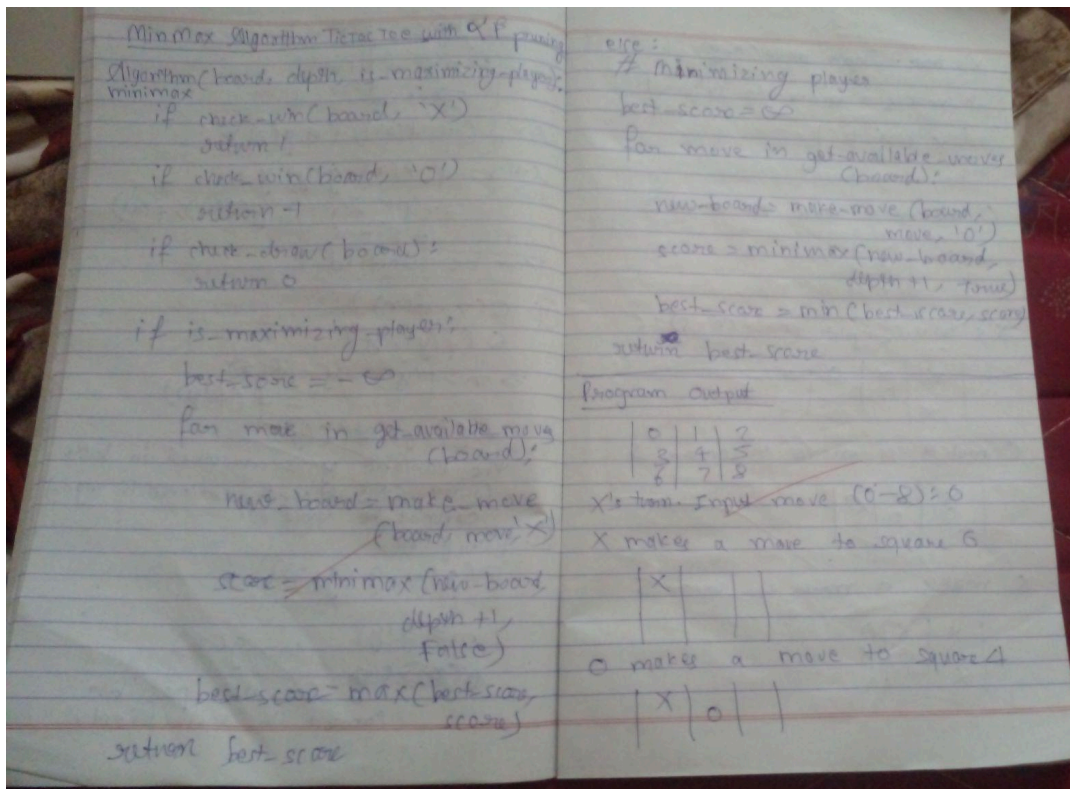 MinMax Algorithm TicTac Toe with α'β pruning
Algorithm (board, depth, is_maximizing-player):
minimax
if check_win (board, 'X')
return 1
if check_win (board, 'O')
return -1
if check_draw (board):
return 0
if is_maximizing_player:
best_score = -∞
for move in get_available_move
(board):
new_board = make_move
(board, move, 'X')
score = minimax (new-board
depth +1,
False)
best_score = max (best-score,
score)
return best_score
else :
# Minimizing player
best_score = ∞
for move in get_available_moves
(board):
new-board = make-move (board,
move, 'O')
score = minimax (new-board,
depth +1, True)
best_score = min (best_score, score)
return best_score
Program Output
| 0 | 1 | 2
3 | 4 | 5
6 | 7 | 8
X's turn. Input move (0-8): 0
X makes a move to square 0
| X | | |
O makes a move to square 4
| X | O | |